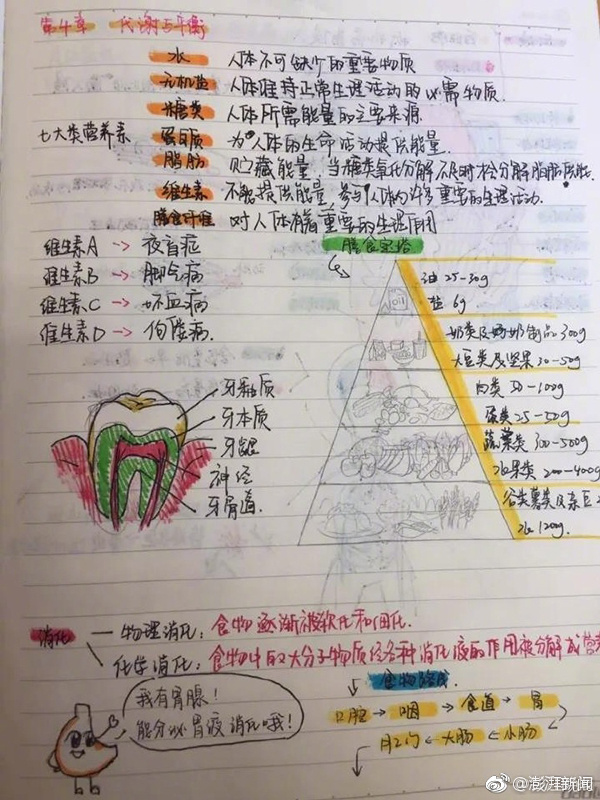 第4章 代谢与平衡
水 人体不可缺少的重要物质
无机盐 人体维持正常生理活动的必需物质.
糖类 人体所需能量的主要来源.
七大类营养素 蛋白质 为人体的生命活动提供能量.
脂肪 贮藏能量,当糖类氧化分解不足时才会分解脂肪供能.
维生素 不能提供能量,参与人体的许多重要的生理活动.
膳食纤维 对人体有着重要的生理作用
维生素A → 夜盲症
维生素B → 脚气病
维生素C → 坏血病
维生素D → 佝偻病.
膳食宝塔
油 25-30g
盐 6g
奶类及奶制品 300g
大豆类及坚果 30-50g
肉类 50-100g
蛋类 25-50g
蔬菜类 300-500g
水果类 200-400g
谷类薯类及杂豆
水 1200g.
牙釉质
牙本质
牙龈
神经
牙骨质.
消化
物理消化: 食物逐渐被软化和细化.
化学消化: 食物中的大分子物质经各种消化液的作用被分解成营
食物
口腔 → 咽 → 食道 → 胃
肛门 ← 大肠 ← 小肠
我有胃腺!
能分泌胃液 消化哦!
@澎湃新闻